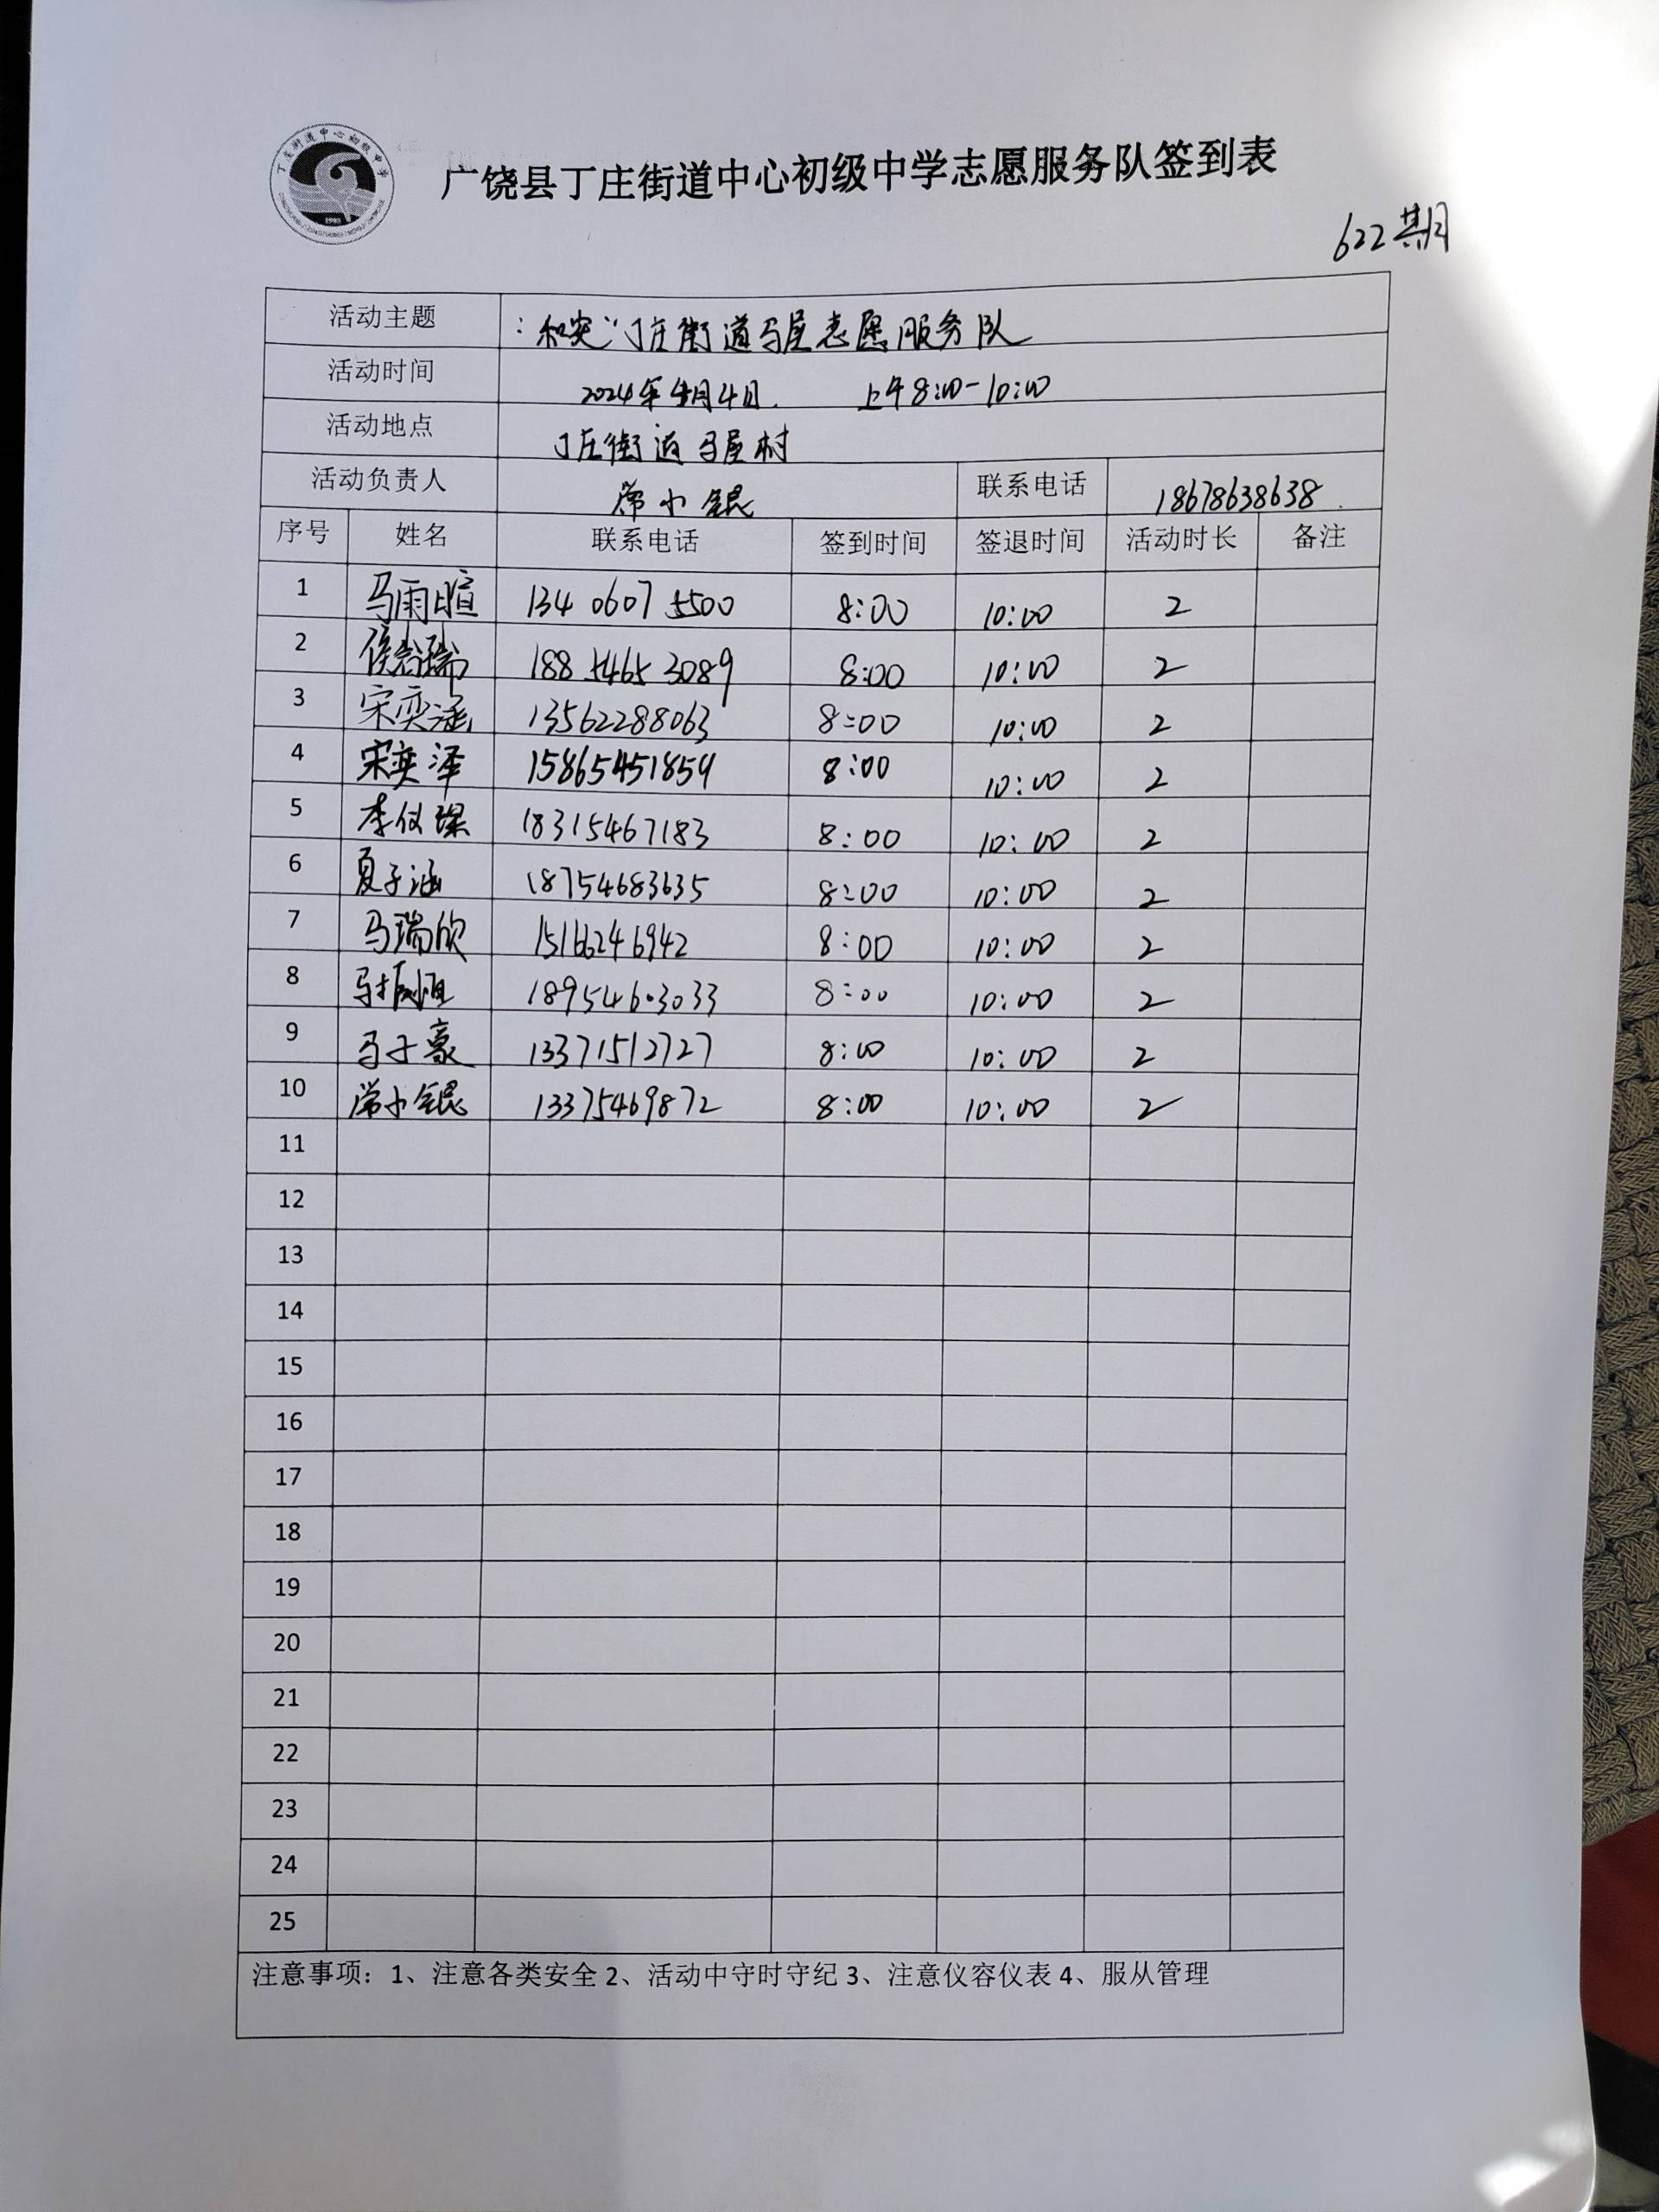 丁庄街道中心初级中学
1983
广饶县丁庄街道中心初级中学志愿服务队签到表
622期
活动主题 :和奕"丁庄街道马屋志愿服务队
活动时间 2024年4月4日. 上午8:00-10:00
活动地点 丁庄街道马屋村
活动负责人 常小锟 联系电话 18678638638
序号 姓名 联系电话 签到时间 签退时间 活动时长 备注
1 马雨暄 134 0607 5500 8:00 10:00 2
2 侯瑞 188 5465 3089 8:00 10:00 2
3 宋奕涵 13562288063 8:00 10:00 2
4 宋奕泽 15865451859 8:00 10:00 2
5 李仪琛 18315467183 8:00 10:00 2
6 夏子涵 18754683635 8:00 10:00 2
7 马瑞欣 15166246942 8:00 10:00 2
8 马振恒 18954603033 8:00 10:00 2
9 马子豪 13371512727 8:00 10:00 2
10 常小锟 13375469872 8:00 10:00 2
11
12
13
14
15
16
17
18
19
20
21
22
23
24
25
注意事项：1、注意各类安全 2、活动中守时守纪 3、注意仪容仪表 4、服从管理